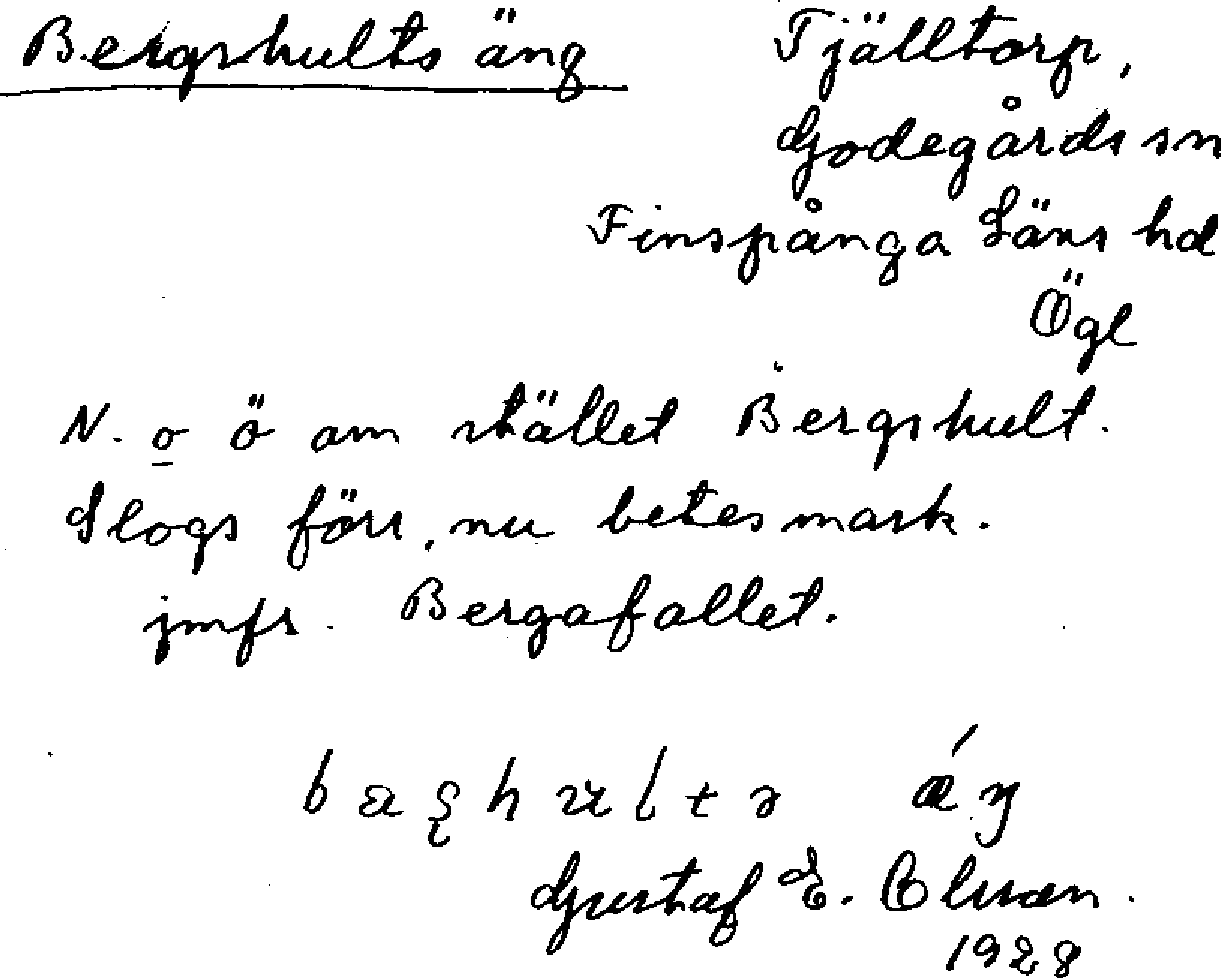 Bergshults äng
Tjälltorp,
Godegårds sn
Finspånga Läns hd
Ögl
N. o ö om stället Bergshult.
Slogs förr, nu betesmark.
jmfr. Bergafallet.
Gustaf E. Olsson.
1928